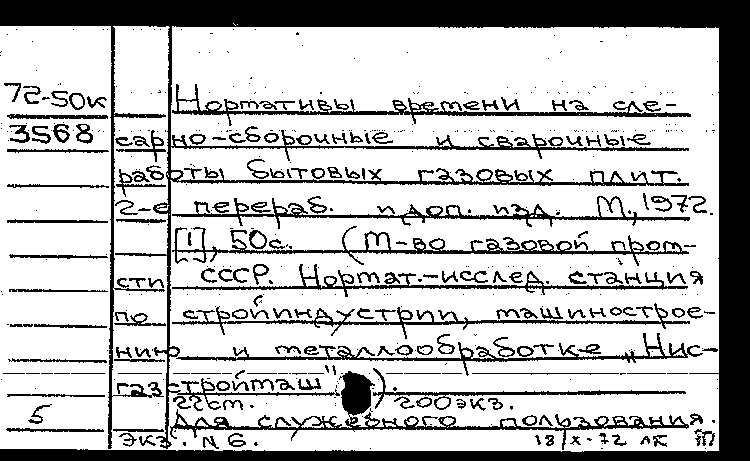 72-50к Нормативы времени на сле-
3568 сарно-сборочные и сварочные
работы бытовых газовых плит.
2-е перераб. и доп. изд. М., 1972.
[1], 50с. (М-во газовой пром-
сти СССР. Нормат.-исслед. станция
по стройиндустрии, машинострое-
нию и металлообработке „Нис-
газстроймаш").
22см. 200экз.
5 Для служебного пользования.
Экз. N 6. 18/X-72 ЛК